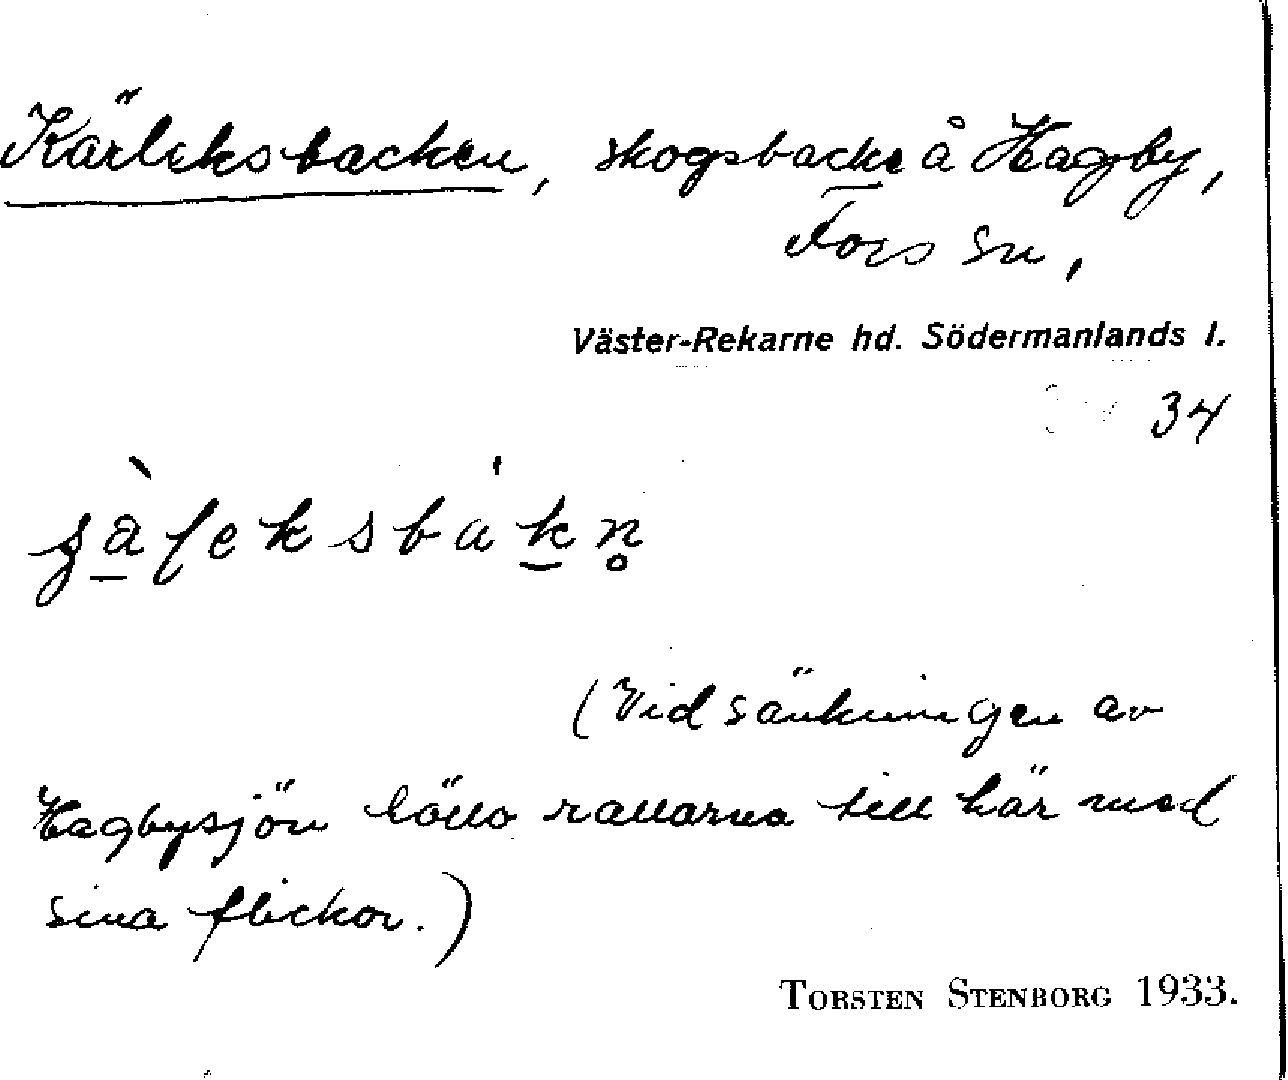 Kärleksbacken, skogsbacke å Hagby,
Fors sn,
Väster-Rekarne hd. Södermanlands l.
34
(Vid sänkningen av
Hagbysjön höllo rallarna till här med
sina flickor.)
TORSTEN STENBORG 1933.